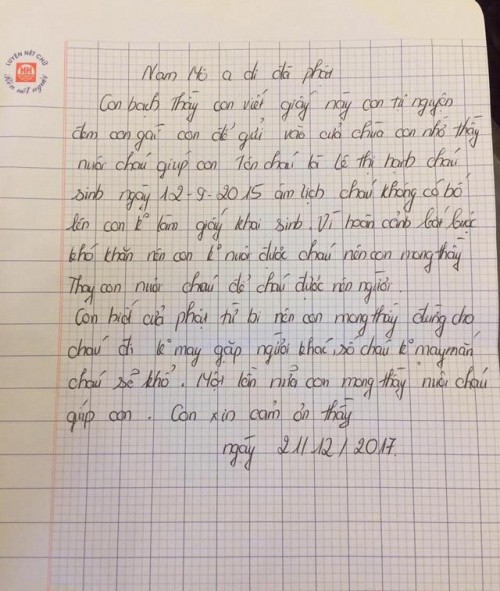 LUYỆN NÉT CHỮ
Rèn nết người
Nam Mô a di đà phật
Con bạch Thầy con viết giấy này con tự nguyên
đem con gái con để gửi vào cửa chùa con nhờ thầy
nuôi cháu giúp con Tên cháu là Lê thị hạnh cháu
sinh ngày 12-9-2015 âm lịch cháu không có bố
lên con k° làm giấy khai sinh. Vì hoàn cảnh bắt buộc
khó khăn nên con k° nuôi được cháu nên con mong thầy
Thay con nuôi cháu để cháu được nên người.
Con biết cửa phật từ bi nên con mong thầy đừng cho
cháu đi k° may gặp người khác, số cháu k° may mắn
cháu sẽ khổ. Một lần nữa con mong thầy nuôi cháu
giúp con. Con xin cảm ơn thầy
ngày 21/12/2017.